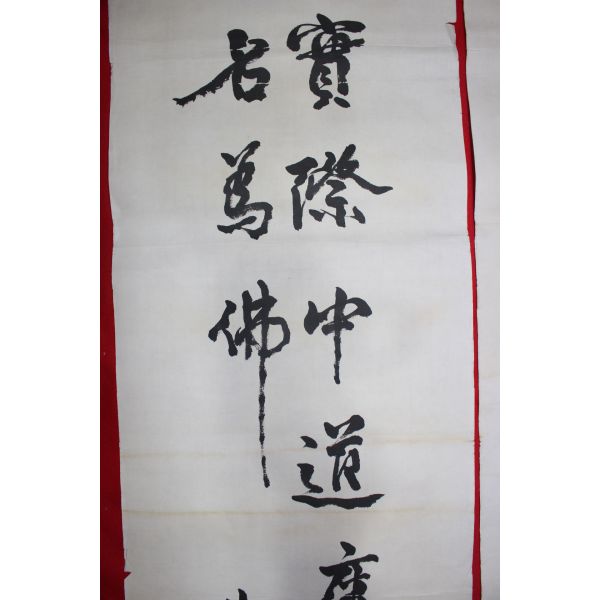 實際中道
名為佛